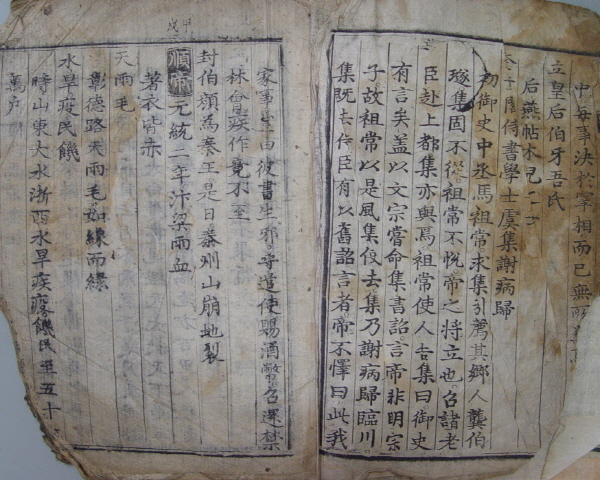 中每事決於宰相而已無
立皇后伯牙吾氏
后燕帖木兒
侍書學士虞集謝病歸
初御史中丞馬祖常求集引薦其鄉人龔伯
璲集固不從祖常不悅帝之將立也召諸老
臣赴上都集亦與馬祖常使人告集曰御史
有言矣盖以文宗嘗命集書詔言帝非明宗
子故祖常以是風集伇去集乃謝病歸臨川
集既去侍臣有以舊詔言者帝不懌曰此我
家事豈由彼書生邪尋遣使賜酒幣召還禁
林會疾作竟不至
封伯顏為秦王是日秦州山崩地裂
甲戌
順帝元統二年汴梁雨血
著衣皆赤
天雨毛
彰德路天雨毛如線而綠
水旱疫民饑
時山東大水浙西水旱疾癘饑民至五十
萬戶